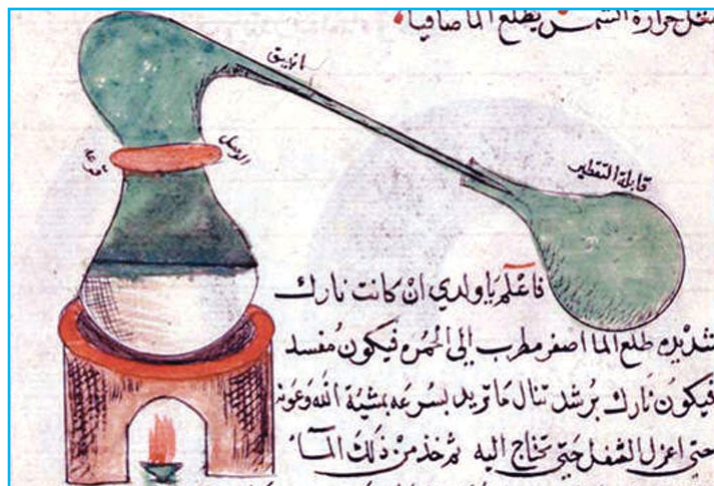 مثل حرارة الشمس يطلع الما صافيا
انبيق
الوصل
قرعه
قابلة التقطير
فاعلم يا ولدي ان كانت نارك
شديده طلع الما اصفر مطرب الى الحمره فيكون مفسد
فيكون نارك برشد تنال ما تريد بسرعه بمشية الله وعونه
حتى اعزل الثفل حتى تحتاج اليه ثم خذ من ذلك الماء